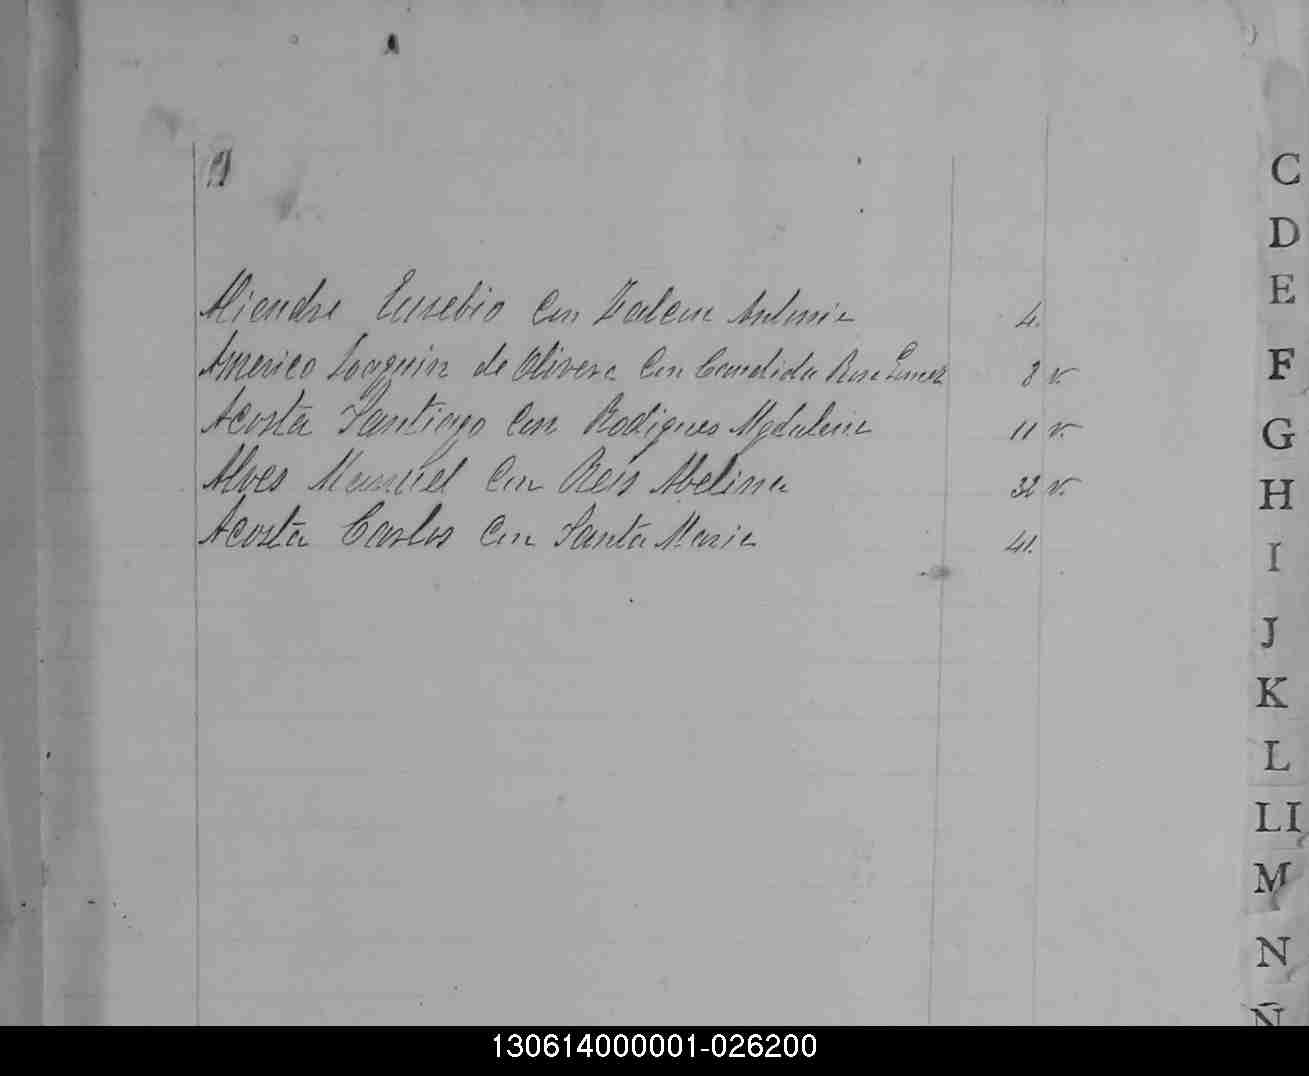 C
D
E
F
G
H
I
J
K
L
LI
M
N
Ñ
Eusebio Con Antonia 4.
Americo Joaquin de Olivera Con Candida Rosa 8 v.
Acosta Santiago Con Rodigues Mgdalena 11 v.
Alves Manuel Con Reis Abelina 32 v.
Acosta Carlos Con Santa Maria 41.
130614000001-026200